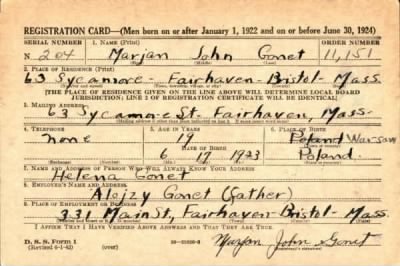 REGISTRATION CARD—(Men born on or after January 1, 1922 and on or before June 30, 1924)
SERIAL NUMBER 1. NAME (Print) ORDER NUMBER
N 204 Marjan John Gonet 11,151
2. PLACE OF RESIDENCE (Print)
63 Sycamore - Fairhaven - Bristol - Mass.
[THE PLACE OF RESIDENCE GIVEN ON THE LINE ABOVE WILL DETERMINE LOCAL BOARD
JURISDICTION; LINE 2 OF REGISTRATION CERTIFICATE WILL BE IDENTICAL]
3. MAILING ADDRESS
63 Sycamore St. Fairhaven, Mass-
4. TELEPHONE 5. AGE IN YEARS 6. PLACE OF BIRTH
none 19 Poland Warsaw
6 17 1923 Poland.
7. NAME AND ADDRESS OF PERSON WHO WILL ALWAYS KNOW YOUR ADDRESS
Helena Gonet
8. EMPLOYER'S NAME AND ADDRESS
Alojzy Gonet (father)
9. PLACE OF EMPLOYMENT OR BUSINESS
331 Main St, Fairhaven - Bristol - Mass.
I AFFIRM THAT I HAVE VERIFIED ABOVE ANSWERS AND THAT THEY ARE TRUE.
D. S. S. Form 1
(Revised 6-1-42) (over) Marjan John Gonet